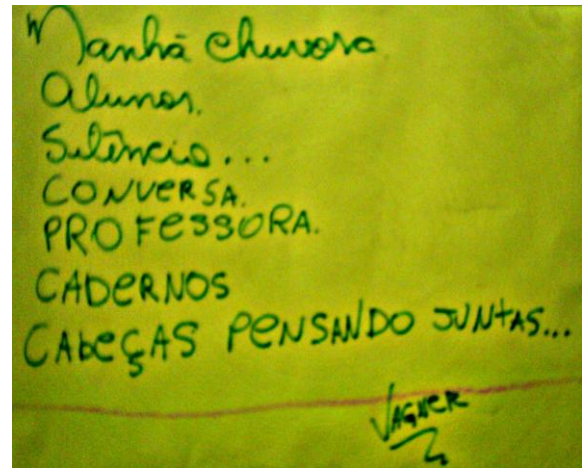 Manhã chuvosa
Alunos.
Silêncio...
CONVERSA.
PROFESSORA.
CADERNOS
CABEÇAS PENSANDO JUNTAS...
VAGNER